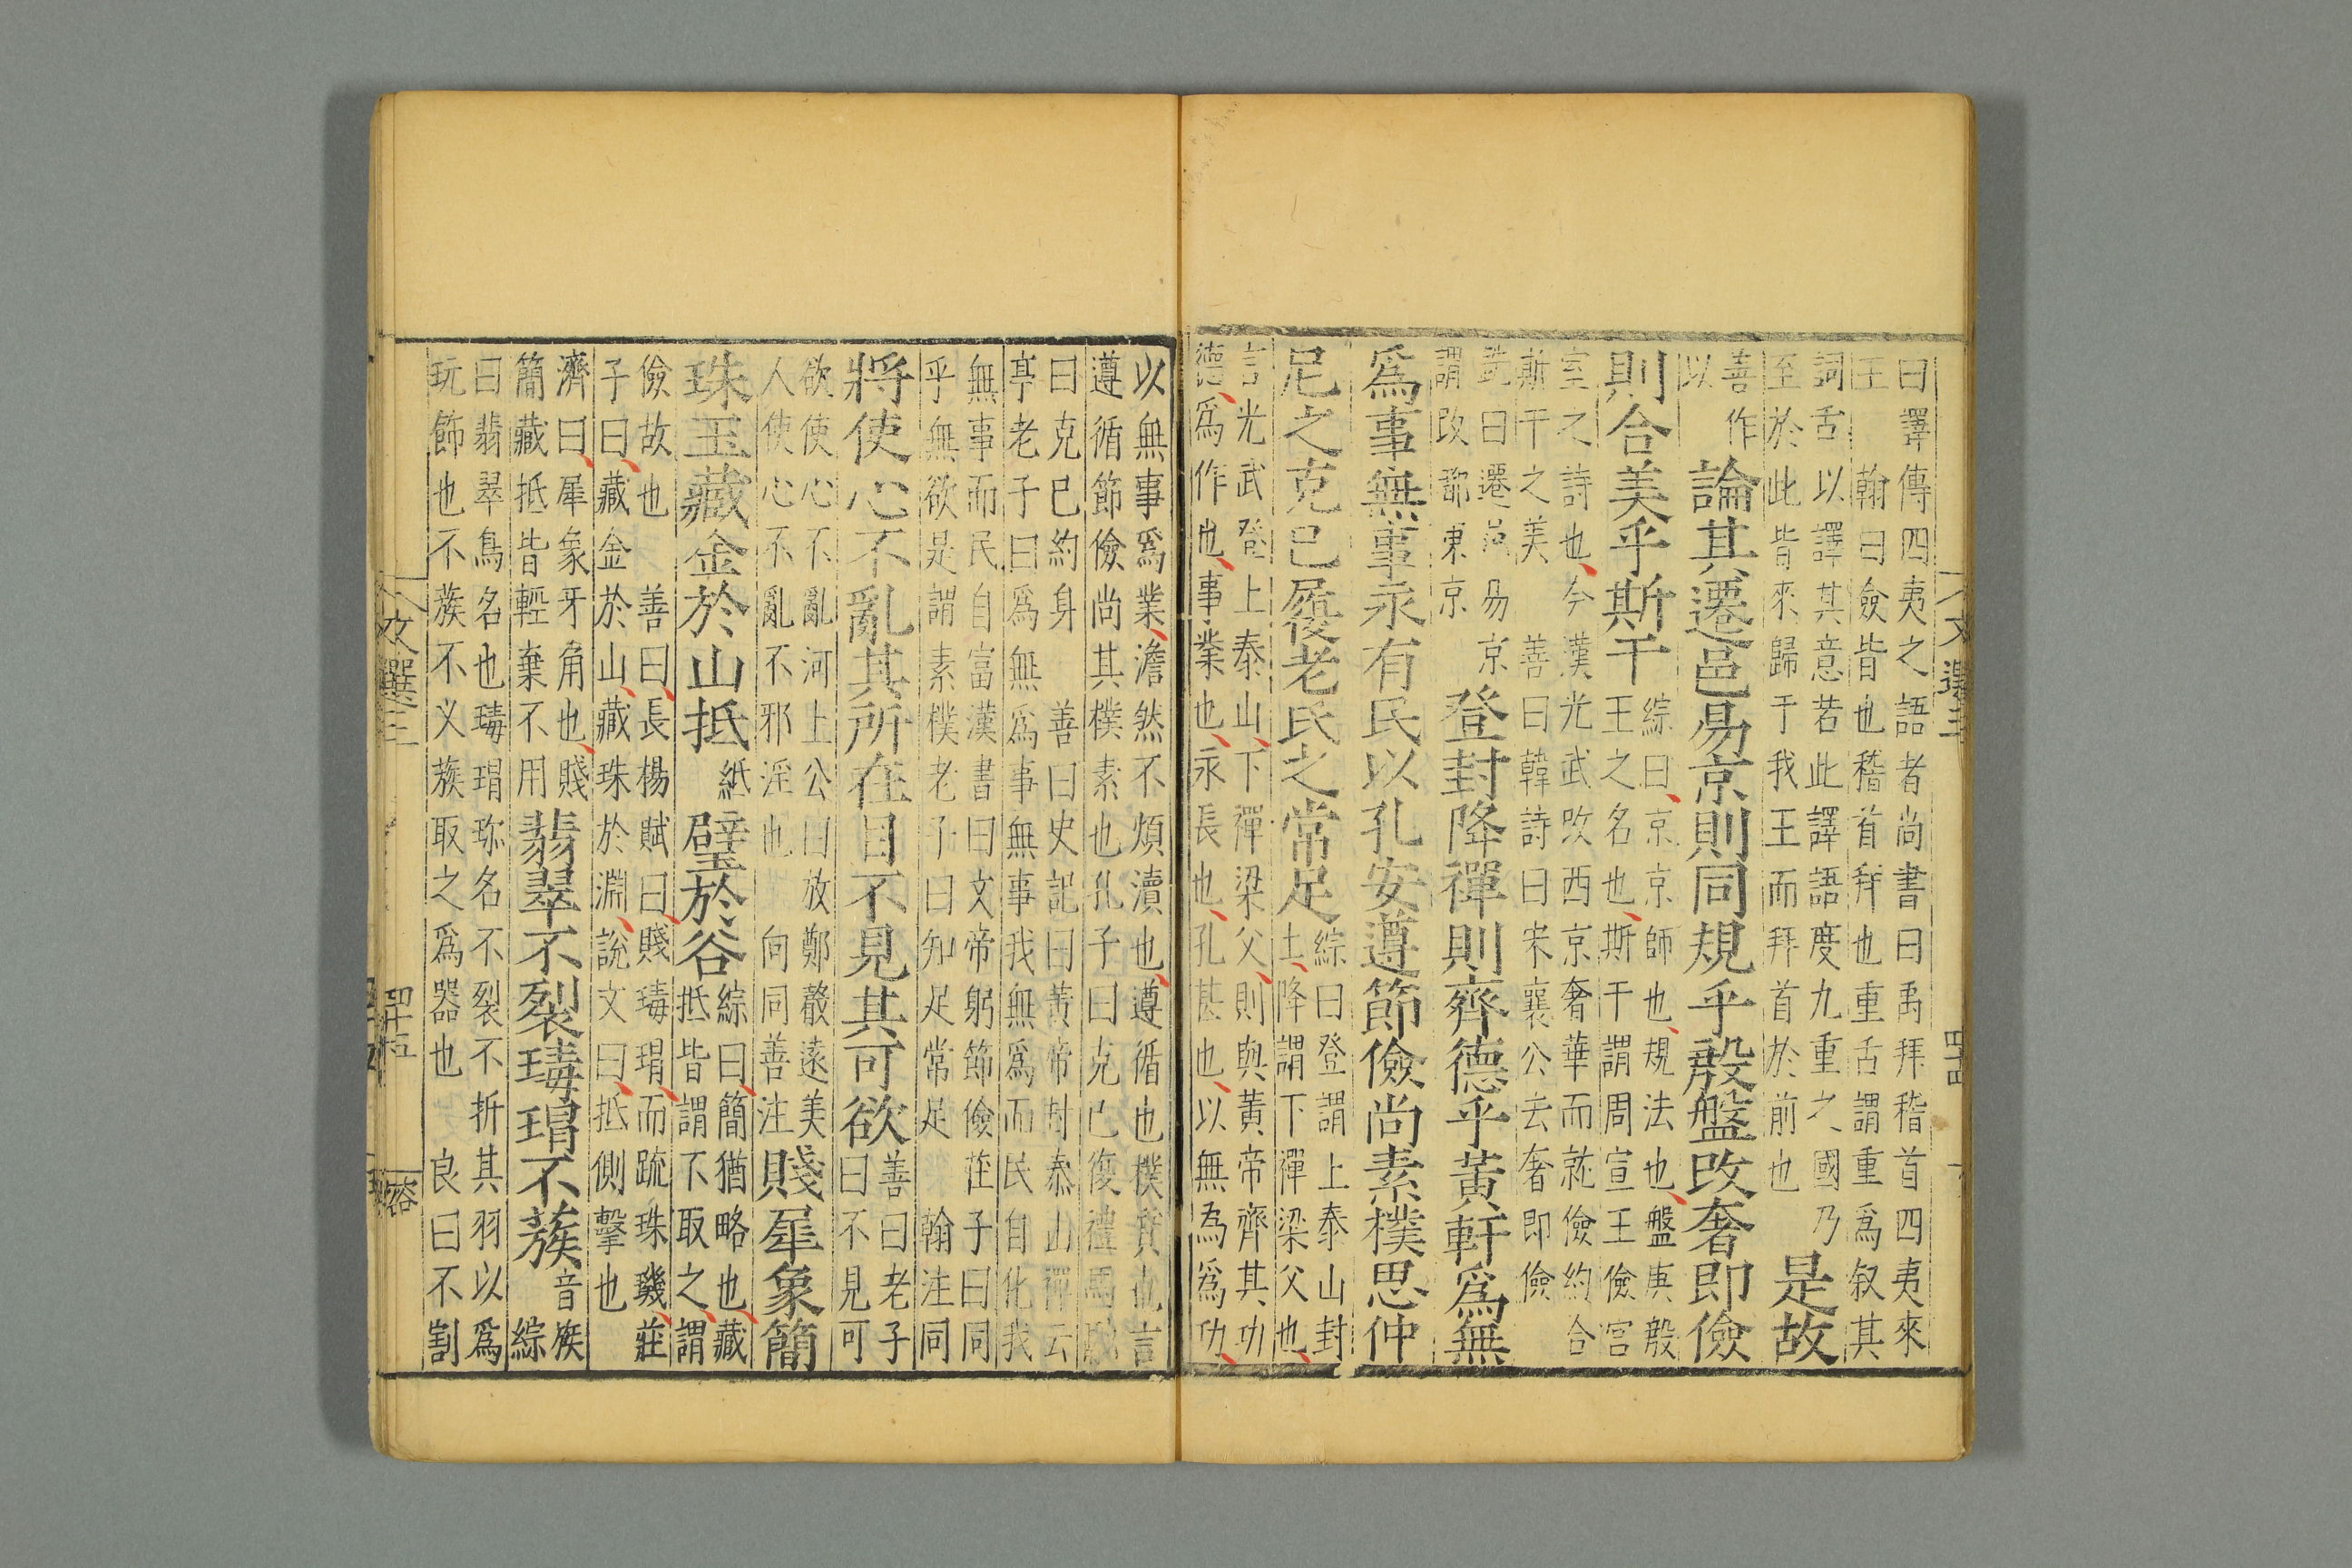 文選三
四十四
曰譯傳四夷之語者尚書曰禹拜稽首四夷來
王 翰曰僉皆也稽首拜也重舌謂重爲叙其
詞舌以譯其意若此譯語度九重之國乃
至於此皆來歸于我王而拜首於前也
是故
善作
以
論其遷邑易京則同規乎殷盤改奢即儉
則合美乎斯干
綜曰京京師也規法也盤庚殷
王之名也斯干謂周宣王儉宮
室之詩也今漢光武改西京奢華而就儉約合
斯干之美 善曰韓詩曰宋襄公去奢即儉
曰遷邑易京
謂改都東京
登封降禪則齊德乎黃軒爲無
爲事無事永有民以孔安遵節儉尚素樸思仲
尼之克己履老氏之常足
綜曰登謂上泰山封
土降謂下禪梁父也
言光武登上泰山下禪梁父則與黃帝齊其功
德爲作也事業也永長也孔甚也以無為爲功
以無事爲業澹然不煩瀆也遵循也樸質也言
遵循節儉尚其樸素也孔子曰克己復禮馬融
曰克己約身 善曰史記曰黃帝封泰山禪云
亭老子曰爲無爲事無事我無爲而民自化我
無事而民自富漢書曰文帝躬節儉莊子曰同
乎無欲是謂素樸老子曰知足常足 翰注同
將使心不亂其所在目不見其可欲
善曰老子
曰不見可
欲使心不亂河上公曰放鄭聲遠美
人使心不亂不邪淫也 向同善注
賤犀象簡
珠玉藏金於山抵
紙
璧於谷
綜曰簡猶略也藏
抵皆謂不取之謂
儉故也 善曰長楊賦曰賤瑇瑁而疏珠璣莊
子曰藏金於山藏珠於淵說文曰抵側擊也
濟曰犀象牙角也賤
簡藏抵皆輕棄不用
翡翠不裂瑇瑁不蔟
音族
綜
曰翡翠鳥名也瑇瑁珎名不裂不折其羽以爲
玩飾也不蔟不乂蔟取之爲器也 良曰不割
文選三
四十五